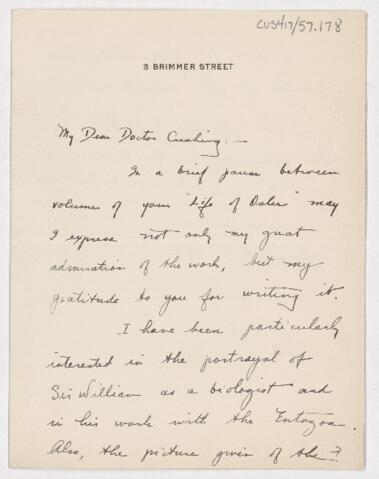 CUSH17/57.178
3 BRIMMER STREET
My Dear Doctor Cushing: —
In a brief pause between
volumes of your "Life of Osler" may
I express not only my great
admiration of the work, but my
gratitude to you for writing it.
I have been particularly
interested in the portrayal of
Sir William as a biologist and
in his work with the Entozoa.
Also, the picture given of the